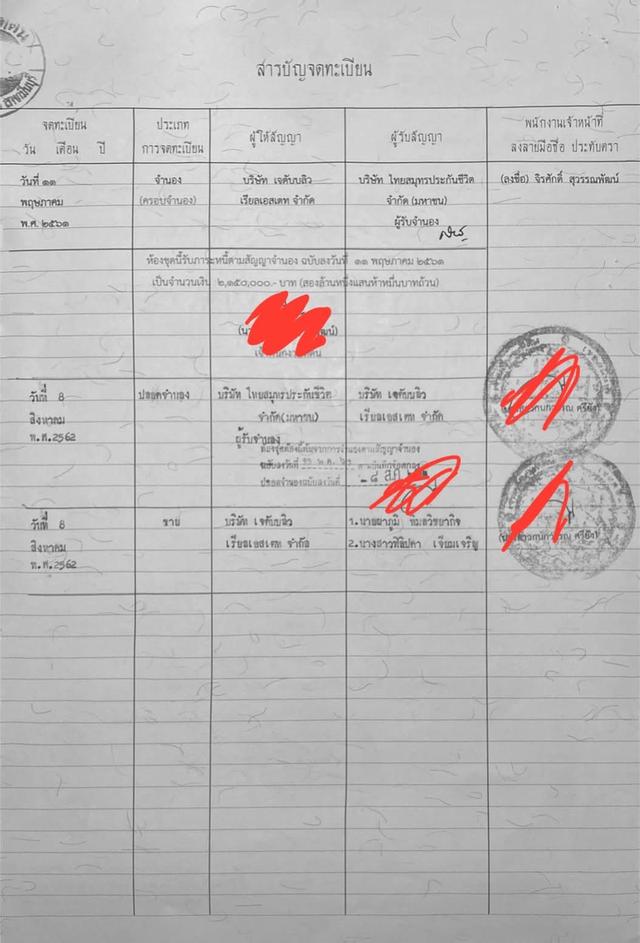 สารบัญจดทะเบียน
จดทะเบียน
วัน เดือน ปี
ประเภท
การจดทะเบียน
ผู้ให้สัญญา
ผู้รับสัญญา
พนักงานเจ้าหน้าที่
ลงลายมือชื่อ ประทับตรา
วันที่ ๑๑
พฤษภาคม
พ.ศ. ๒๕๖๑
จำนอง
(ครอบจำนอง)
บริษัท เจดับบลิว
เรียลเอสเตท จำกัด
บริษัท ไทยสมุทรประกันชีวิต
จำกัด (มหาชน)
ผู้รับจำนอง
(ลงชื่อ) จิรศักดิ์ สุวรรณพัฒน์
ห้องชุดนี้รับภาระหนี้ตามสัญญาจำนอง ฉบับลงวันที่ ๑๑ พฤษภาคม ๒๕๖๑
เป็นจำนวนเงิน ๒,๑๕๐,๐๐๐.- บาท (สองล้านหนึ่งแสนห้าหมื่นบาทถ้วน)
วันที่ 8
สิงหาคม
พ.ศ.2562
ปลอดจำนอง
บริษัท ไทยสมุทรประกันชีวิต
จำกัด(มหาชน)
ผู้รับจำนอง
บริษัท เจดับบลิว
เรียลเอสเตท จำกัด
ฉบับลงวันที่
ปลอดจำนองฉบับลงวันที่
วันที่ 8
สิงหาคม
พ.ศ.2562
ขาย
บริษัท เจดับบลิว
เรียลเอสเตท จำกัด
1.นายผาภูมิ
2.นางสาว เจียมเจริญ